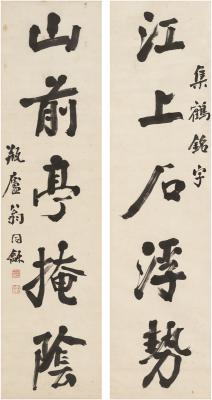 集鶴銘字
江上石浮勢
山前亭掩陰
瓶廬翁同龢